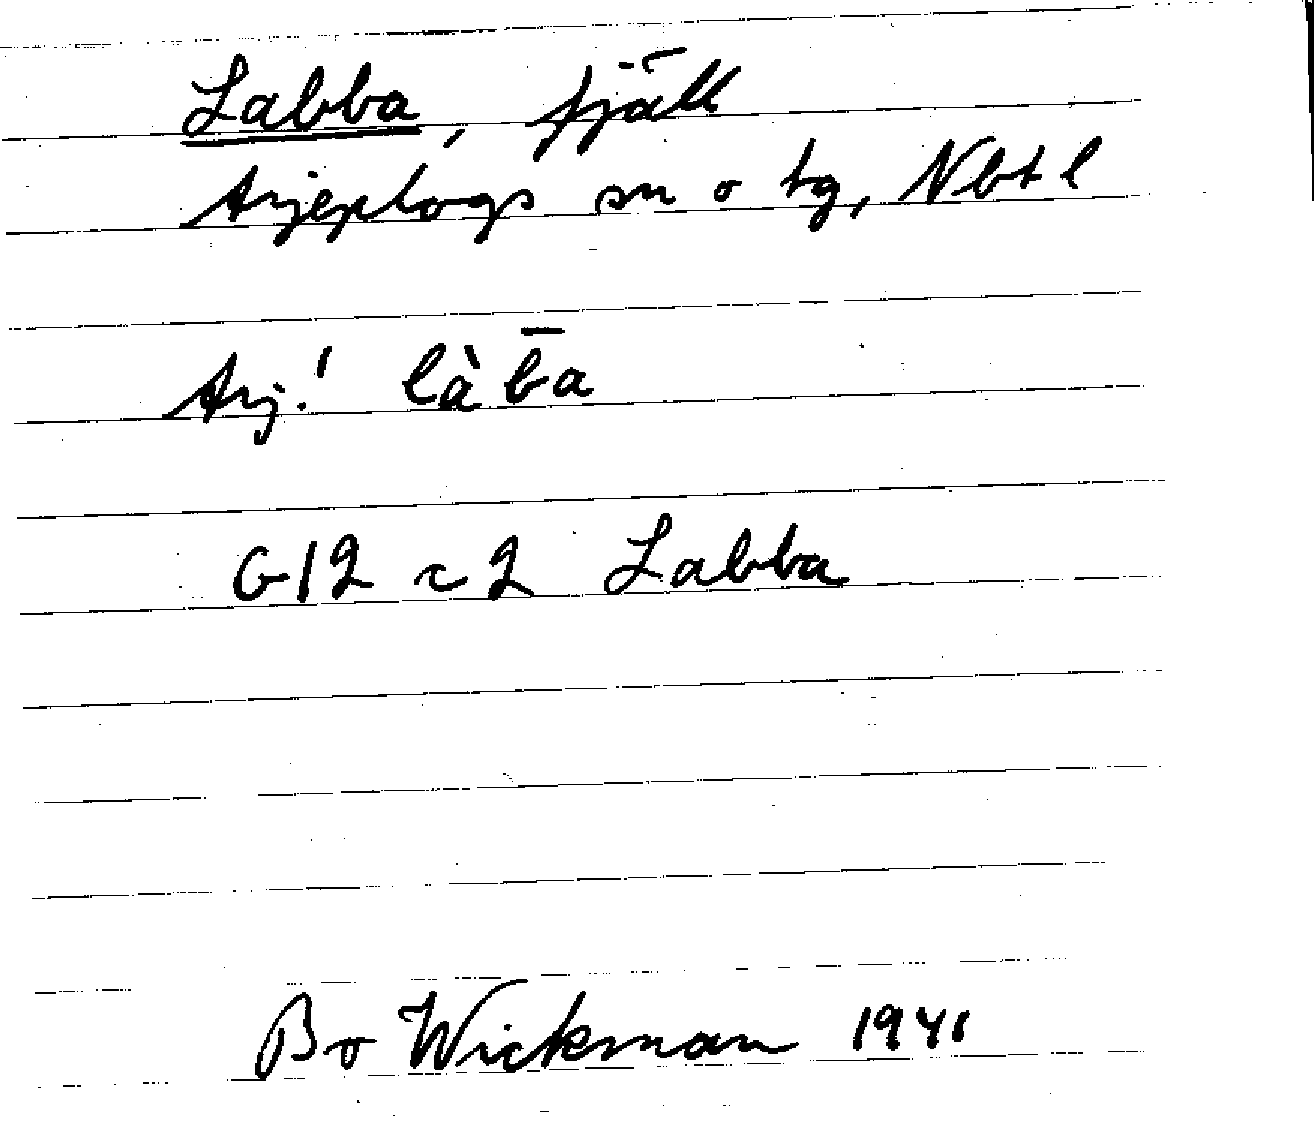 Labba, fjäll
Arjeplogs sn o tg, Nbtl
Arj.! làb̄a
G12 c2 Labba
Bo Wickman 1941